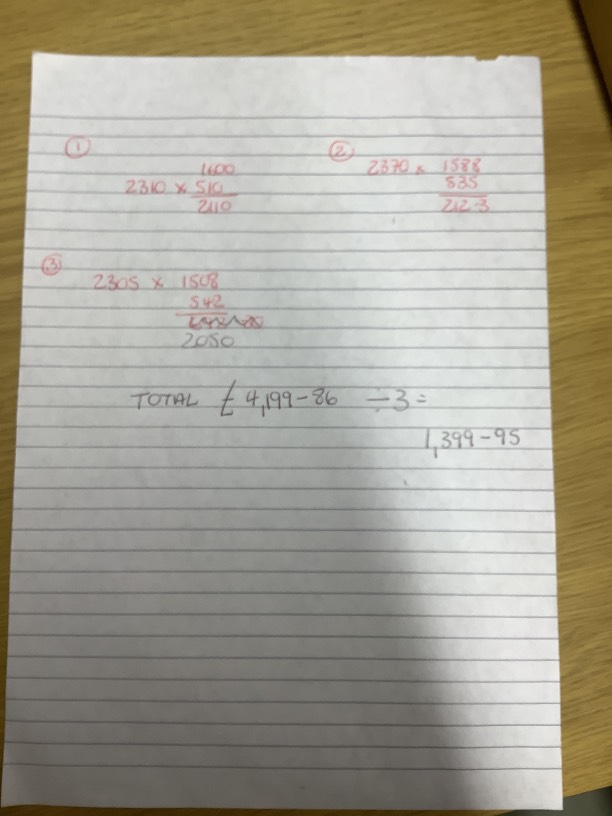 ①
1600
2310 × 510
2110
②
2370 × 1588
535
212-3
③
2305 × 1508
542
2050
TOTAL £4,199-86 ÷3=
1,399-95